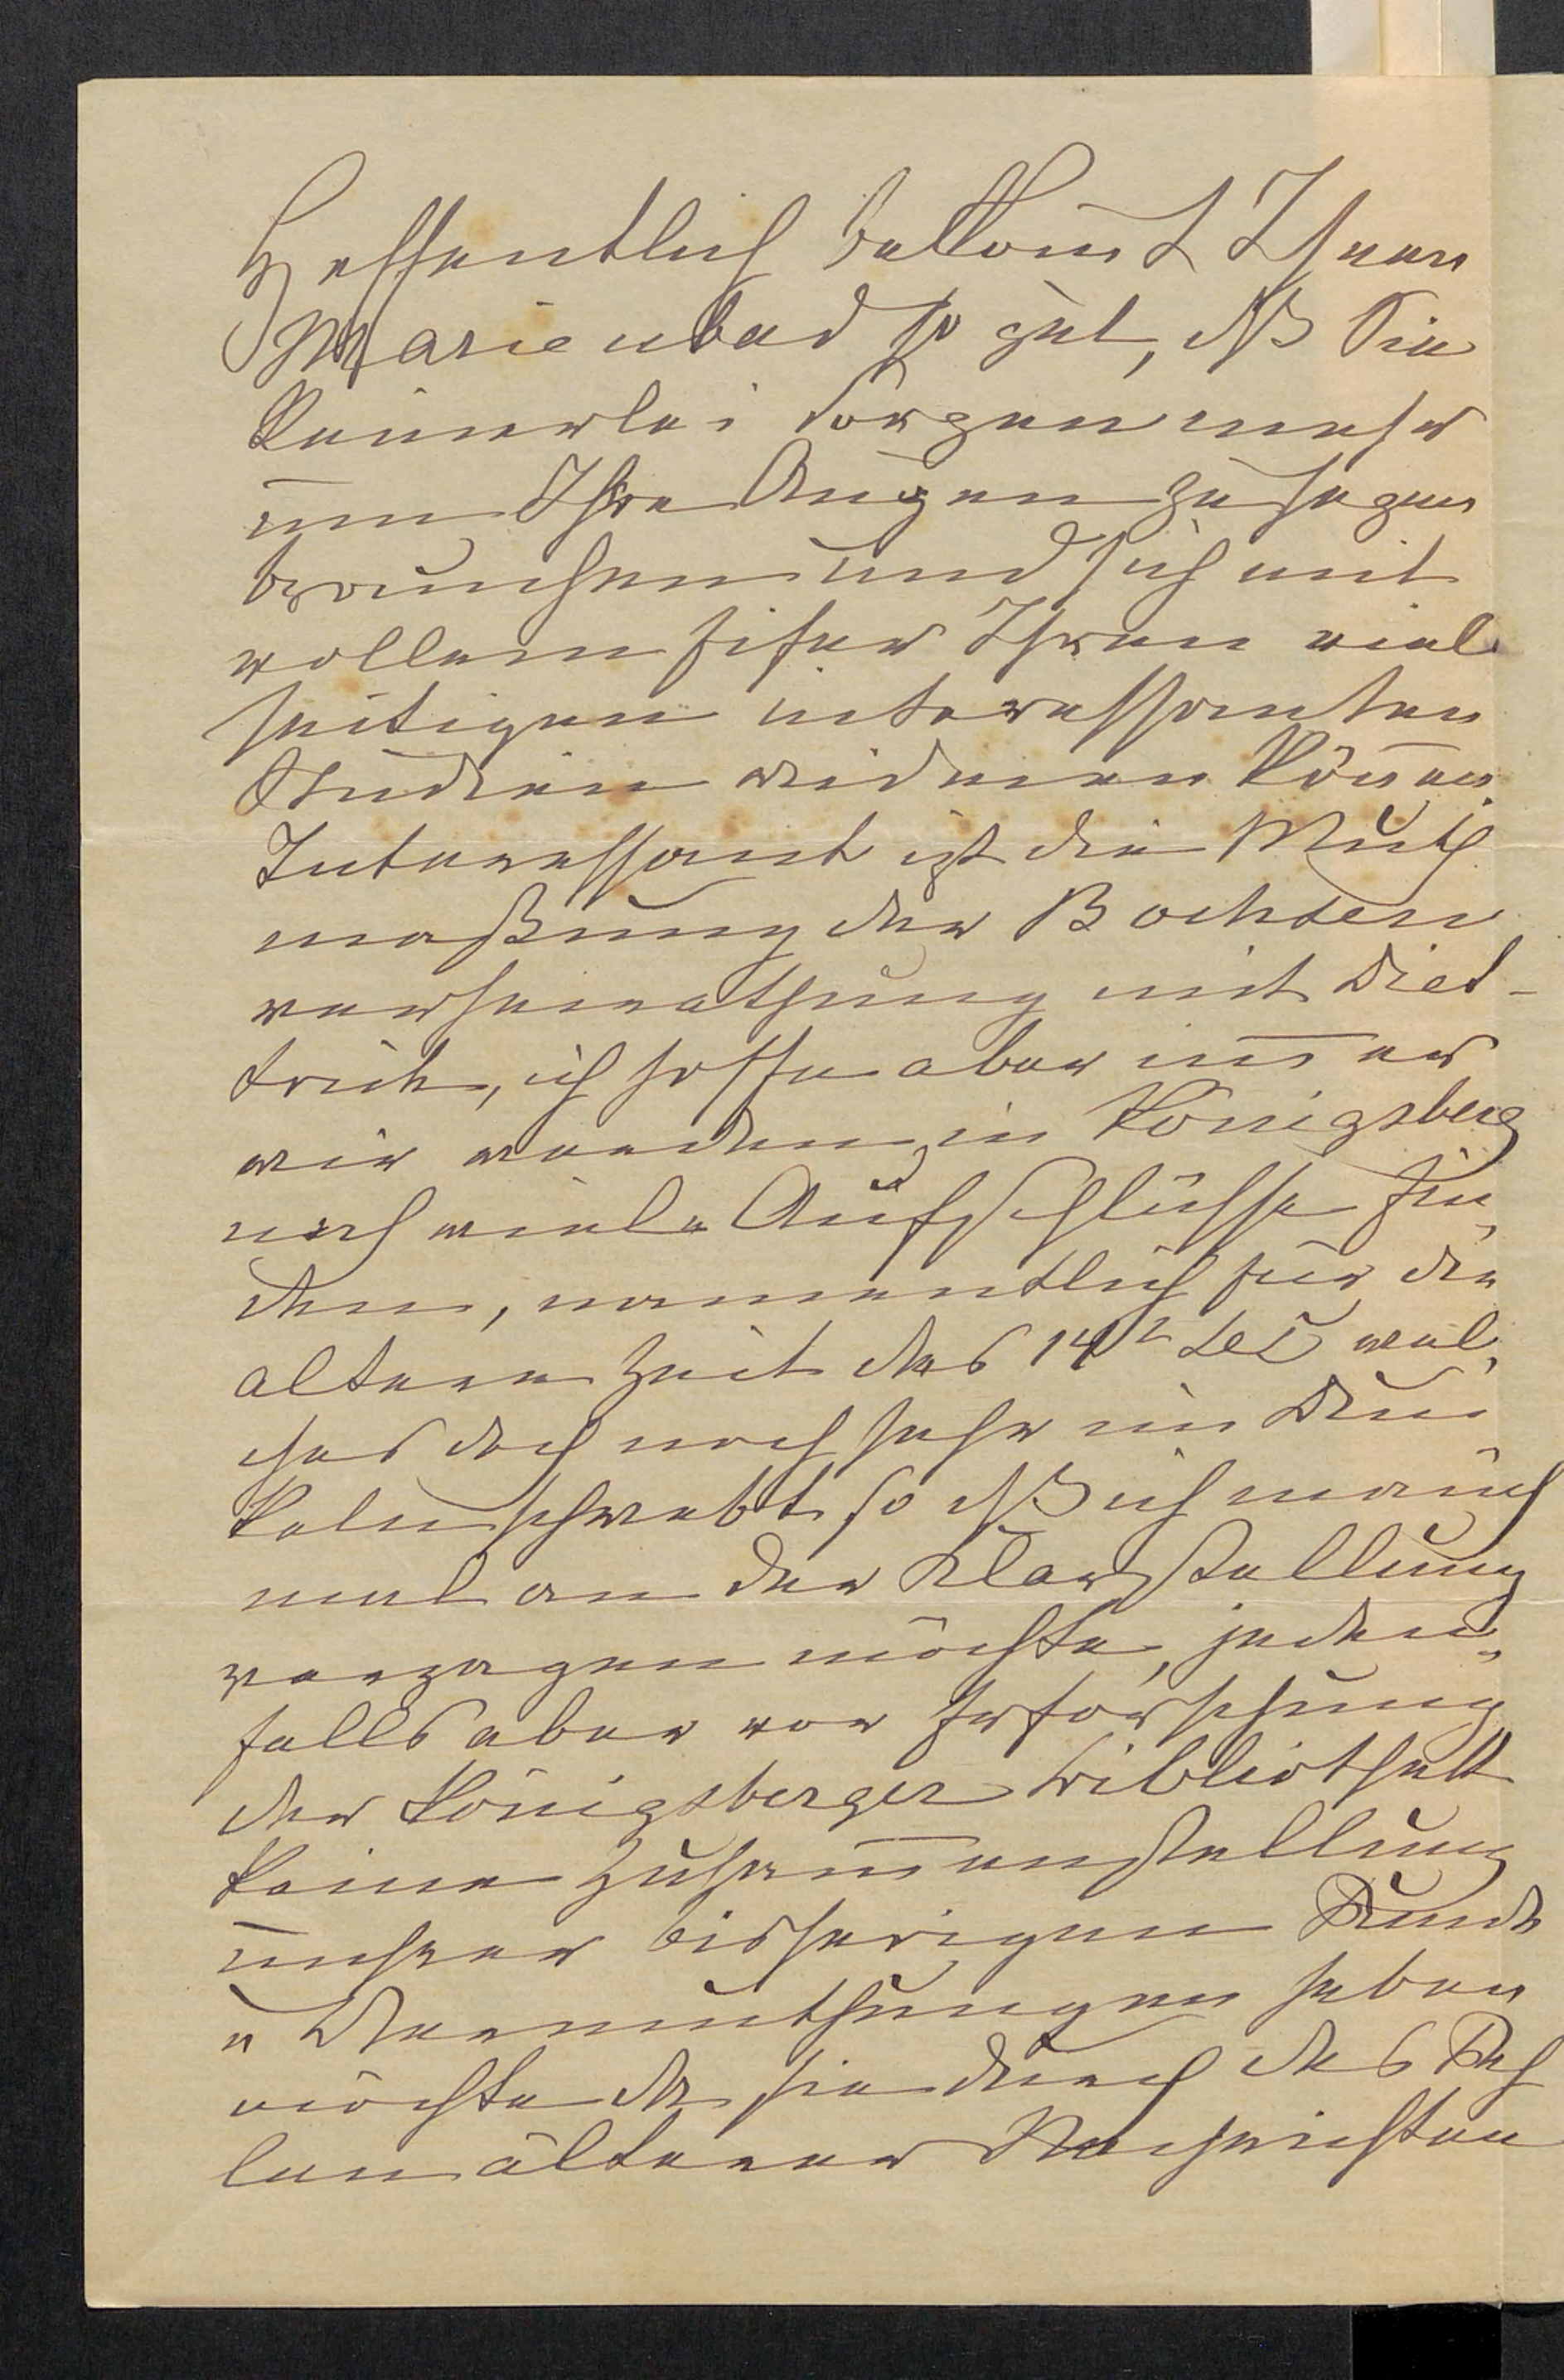 Hoffentlich bekom̄t Ihnen
Marienbad so gut, dß Sie
keinerlei Sorgen mehr
um Ihre Augen zu hegen
brauchen und sich mit
vollem Eifer Ihren viel
seitigen interessanten
Studien widmen kön̄en.
Interessant ist die Muth
maßung der Töchter
verheirathung mit Diet-
trich, ich hoffe aber im̄er
wir werden in Königsberg
noch viele Aufschlüsse fin„
den, namentlich für die
ältere Zeit des 14t wel„
ches doch noch sehr im Dun
keln schwebt so dß ich manch
mal an der Klarstellung
verzagen möchte, jeden„
falls aber vor Erforschung
der Königsberger Bibliothek
keine Zusam̄enstellung
unserer bisherigen Funde
u Vermuthungen geben
möchte da sie durch das Feh
len älterer Nachrichten